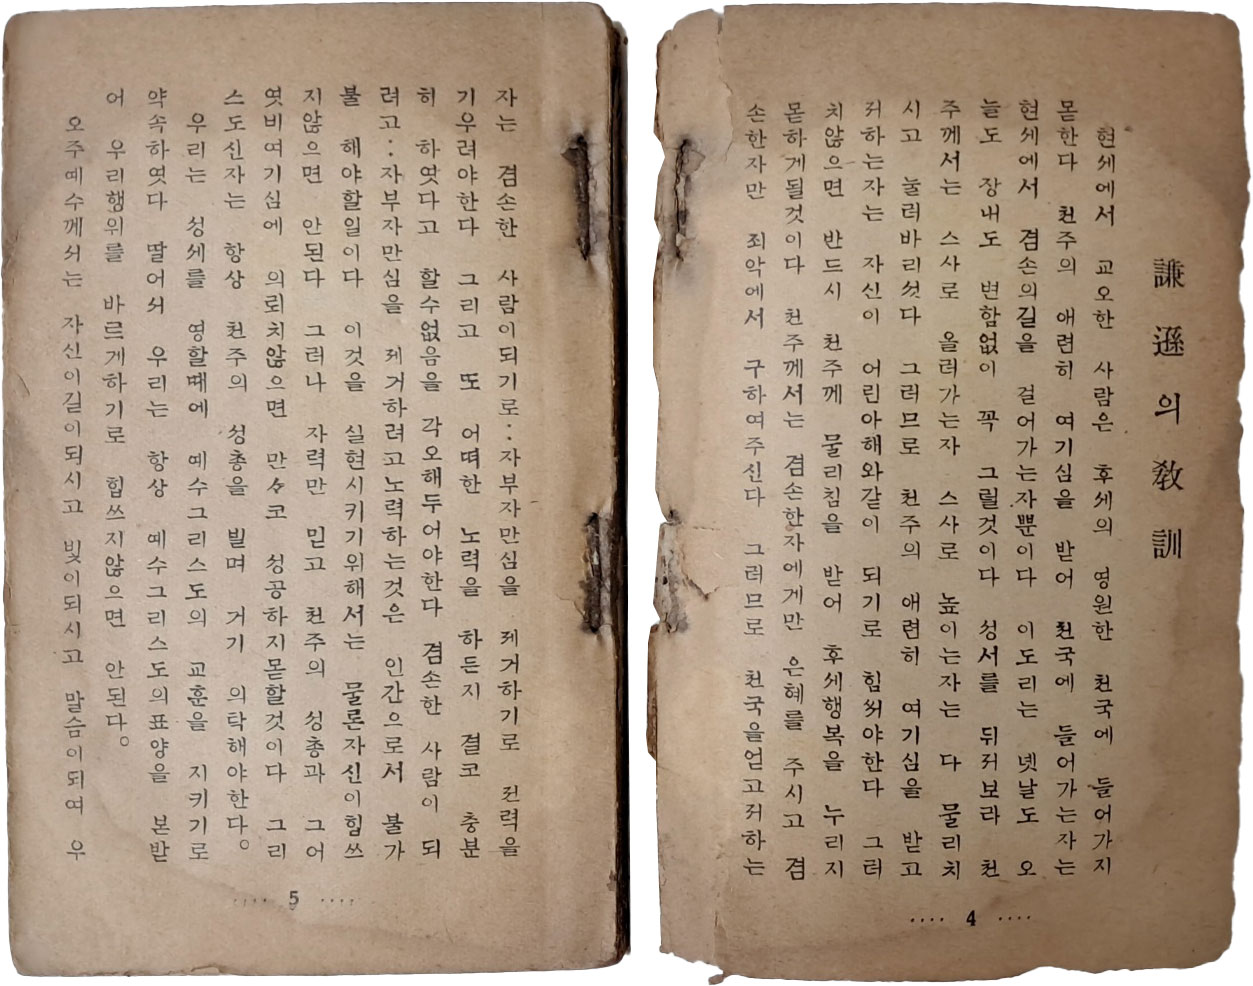 謙遜의敎訓
현세에서 교오한 사람은 후세의 영원한 천국에 들어가지
몯한다 천주의 애련히 여기심을 받어 천국에 들어가는자는
현세에서 겸손의길을 걸어가는자뿐이다 이도리는 녯날도 오
늘도 장내도 변함없이 꼭 그럴것이다 성서를 뒤저보라 천
주께서는 스사로 올러가는자 스사로 높이는자는 다 물리치
시고 눌러바리섯다 그러므로 천주의 애련히 여기심을 받고
저하는자는 자신이 어린아해와같이 되기로 힘써야한다 그러
치않으면 반드시 천주께 물리침을 받어 후세행복을 누리지
몯하게될것이다 천주께서는 겸손한자에게만 은혜를 주시고 겸
손한자만 죄악에서 구하여주신다 그러므로 천국을얻고저하는
.... 4 ....
자는 겸손한 사람이되기로:자부자만심을 제거하기로 전력을
기우려야한다 그리고 또 어떠한 노력을 하든지 결코 충분
히 하얏다고 할수없음을 각오해두어야한다 겸손한 사람이 되
려고:자부자만심을 제거하려고노력하는것은 인간으로서 불가
불 해야할일이다 이것을 실현시키기위해서는 물론자신이힘쓰
지않으면 안된다 그러나 자력만 믿고 천주의 성총과 그어
엿비여기심에 의뢰치않으면 만사코 성공하지몯할것이다 그리
스도신자는 항상 천주의 성총을 빌며 거기 의탁해야한다。
우리는 성세를 영할때에 예수그리스도의 교훈을 지키기로
약속하엿다 딸어서 우리는 항상 예수그리스도의표양을 본받
어 우리행위를 바르게하기로 힙쓰지않으면 안된다。
오주예수께서는 자신이길이되시고 빛이되시고 말슴이되여 우
.... 5 ....